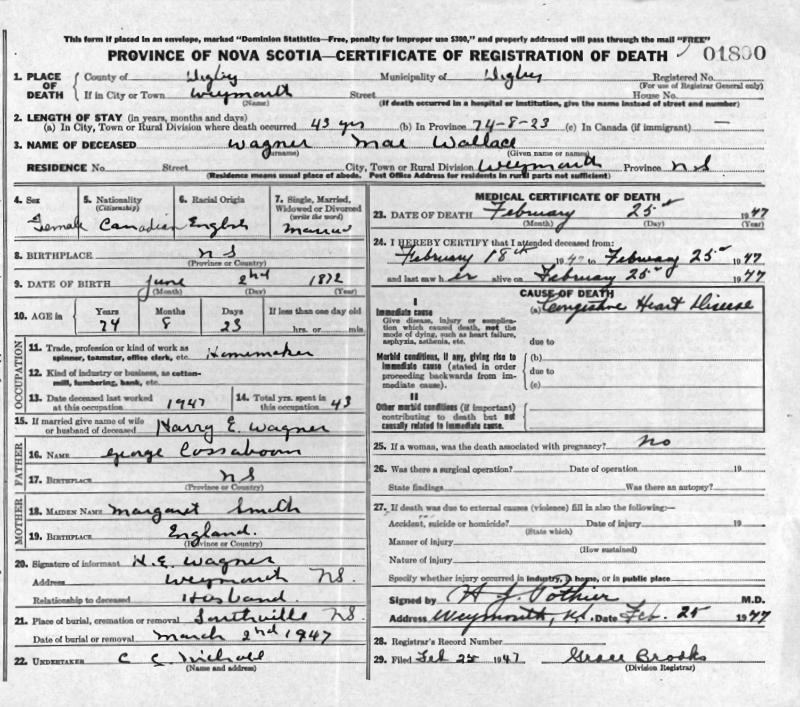 This form if placed in an envelope, marked "Dominion Statistics—Free, penalty for improper use $300," and properly addressed will pass through the mail "FREE"
PROVINCE OF NOVA SCOTIA—CERTIFICATE OF REGISTRATION OF DEATH 01890
1. PLACE OF DEATH
County of Digby Municipality of Digby Registered No.
(For use of Registrar General only)
If in City or Town Weymouth Street House No.
(Name) (If death occurred in a hospital or institution, give the name instead of street and number)
2. LENGTH OF STAY (in years, months and days)
(a) In City, Town or Rural Division where death occurred 43 yrs (b) In Province 74-8-23 (c) In Canada (if immigrant) —
3. NAME OF DECEASED Wagner Mae Wallace
(Surname) (Given name or names)
RESIDENCE No Street City, Town or Rural Division Weymouth Province NS
(Residence means usual place of abode. Post Office Address for residents in rural parts not sufficient)
4. Sex
Female
5. Nationality
(Citizenship)
Canadian
6. Racial Origin
English
7. Single, Married, Widowed or Divorced
(write the word)
8. BIRTHPLACE NS
(Province or Country)
9. DATE OF BIRTH June 2nd 1872
(Month) (Day) (Year)
10. AGE in
Years Months Days If less than one day old
74 8 23 hrs. or min.
OCCUPATION
11. Trade, profession or kind of work as spinner, teamster, office clerk, etc. Homemaker
12. Kind of industry or business, as cotton-mill, lumbering, bank, etc.
13. Date deceased last worked at this occupation 1947
14. Total yrs. spent in this occupation 43
15. If married give name of wife or husband of deceased Harry E. Wagner
FATHER
16. NAME George Cossaboom
17. BIRTHPLACE NS
(Province or Country)
MOTHER
18. MAIDEN NAME Margaret Smith
19. BIRTHPLACE England.
(Province or Country)
20. Signature of informant H. E. Wagner
Address Weymouth NS.
Relationship to deceased Husband
21. Place of burial, cremation or removal Southville NS.
Date of burial or removal March 2nd 1947
22. UNDERTAKER C
(Name and address)
MEDICAL CERTIFICATE OF DEATH
23. DATE OF DEATH February 25 1947
(Month) (Day) (Year)
24. I HEREBY CERTIFY that I attended deceased from:
February 18th 1947 to February 25 1947
and last saw her alive on February 25 1947
CAUSE OF DEATH
I
Immediate cause (a) Congestive Heart Disease
Give disease, injury or complication which caused death, not the mode of dying, such as heart failure, asphyxia, asthenia, etc.
due to
Morbid conditions, if any, giving rise to immediate cause (stated in order proceeding backwards from immediate cause).
(b)
due to
(c)
II
Other morbid conditions (if important) contributing to death but not causally related to immediate cause.
25. If a woman, was the death associated with pregnancy? No
26. Was there a surgical operation? Date of operation 19
State findings Was there an autopsy?
27. If death was due to external causes (violence) fill in also the following:—
Accident, suicide or homicide? Date of injury 19
(State which)
Manner of injury
(How sustained)
Nature of injury
Specify whether injury occurred in industry, in home, or in public place
Signed by H J Pothier M.D.
Address Weymouth, Date Feb. 25 1947
28. Registrar's Record Number
29. Filed Feb 25 1947 Grace Brooks
(Division Registrar)